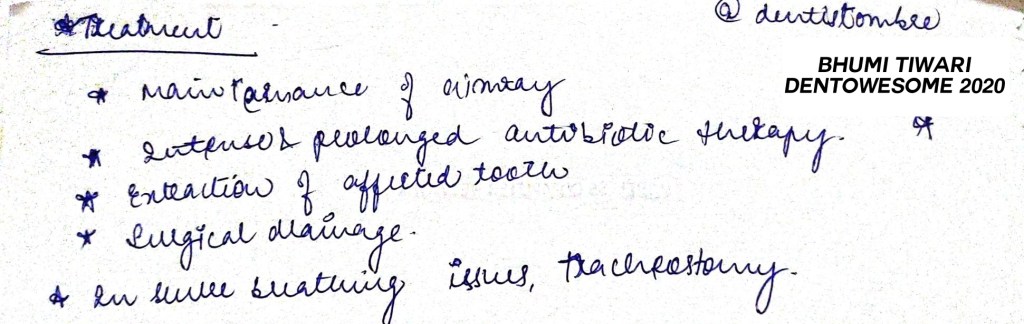 * Treatment
@ dentistombre
BHUMI TIWARI
DENTOWESOME 2020
* Maintainance of airway
* Intense & prolonged antibiotic therapy. *
* Extraction of affected tooth
* Surgical drainage.
* In severe breathing issues, tracheostomy.